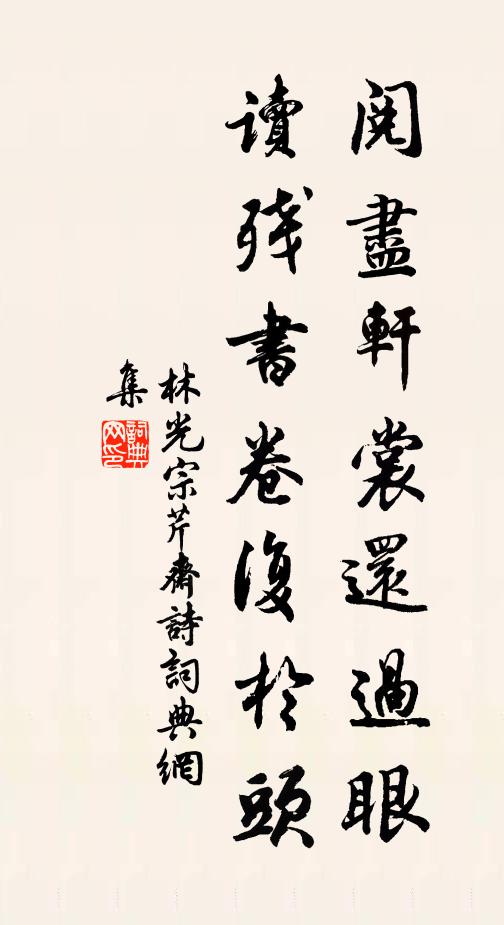 閱盡軒裳還過眼
讀殘書卷復於頭
林光宗芹齋詩詞典網
集
詞典
网印